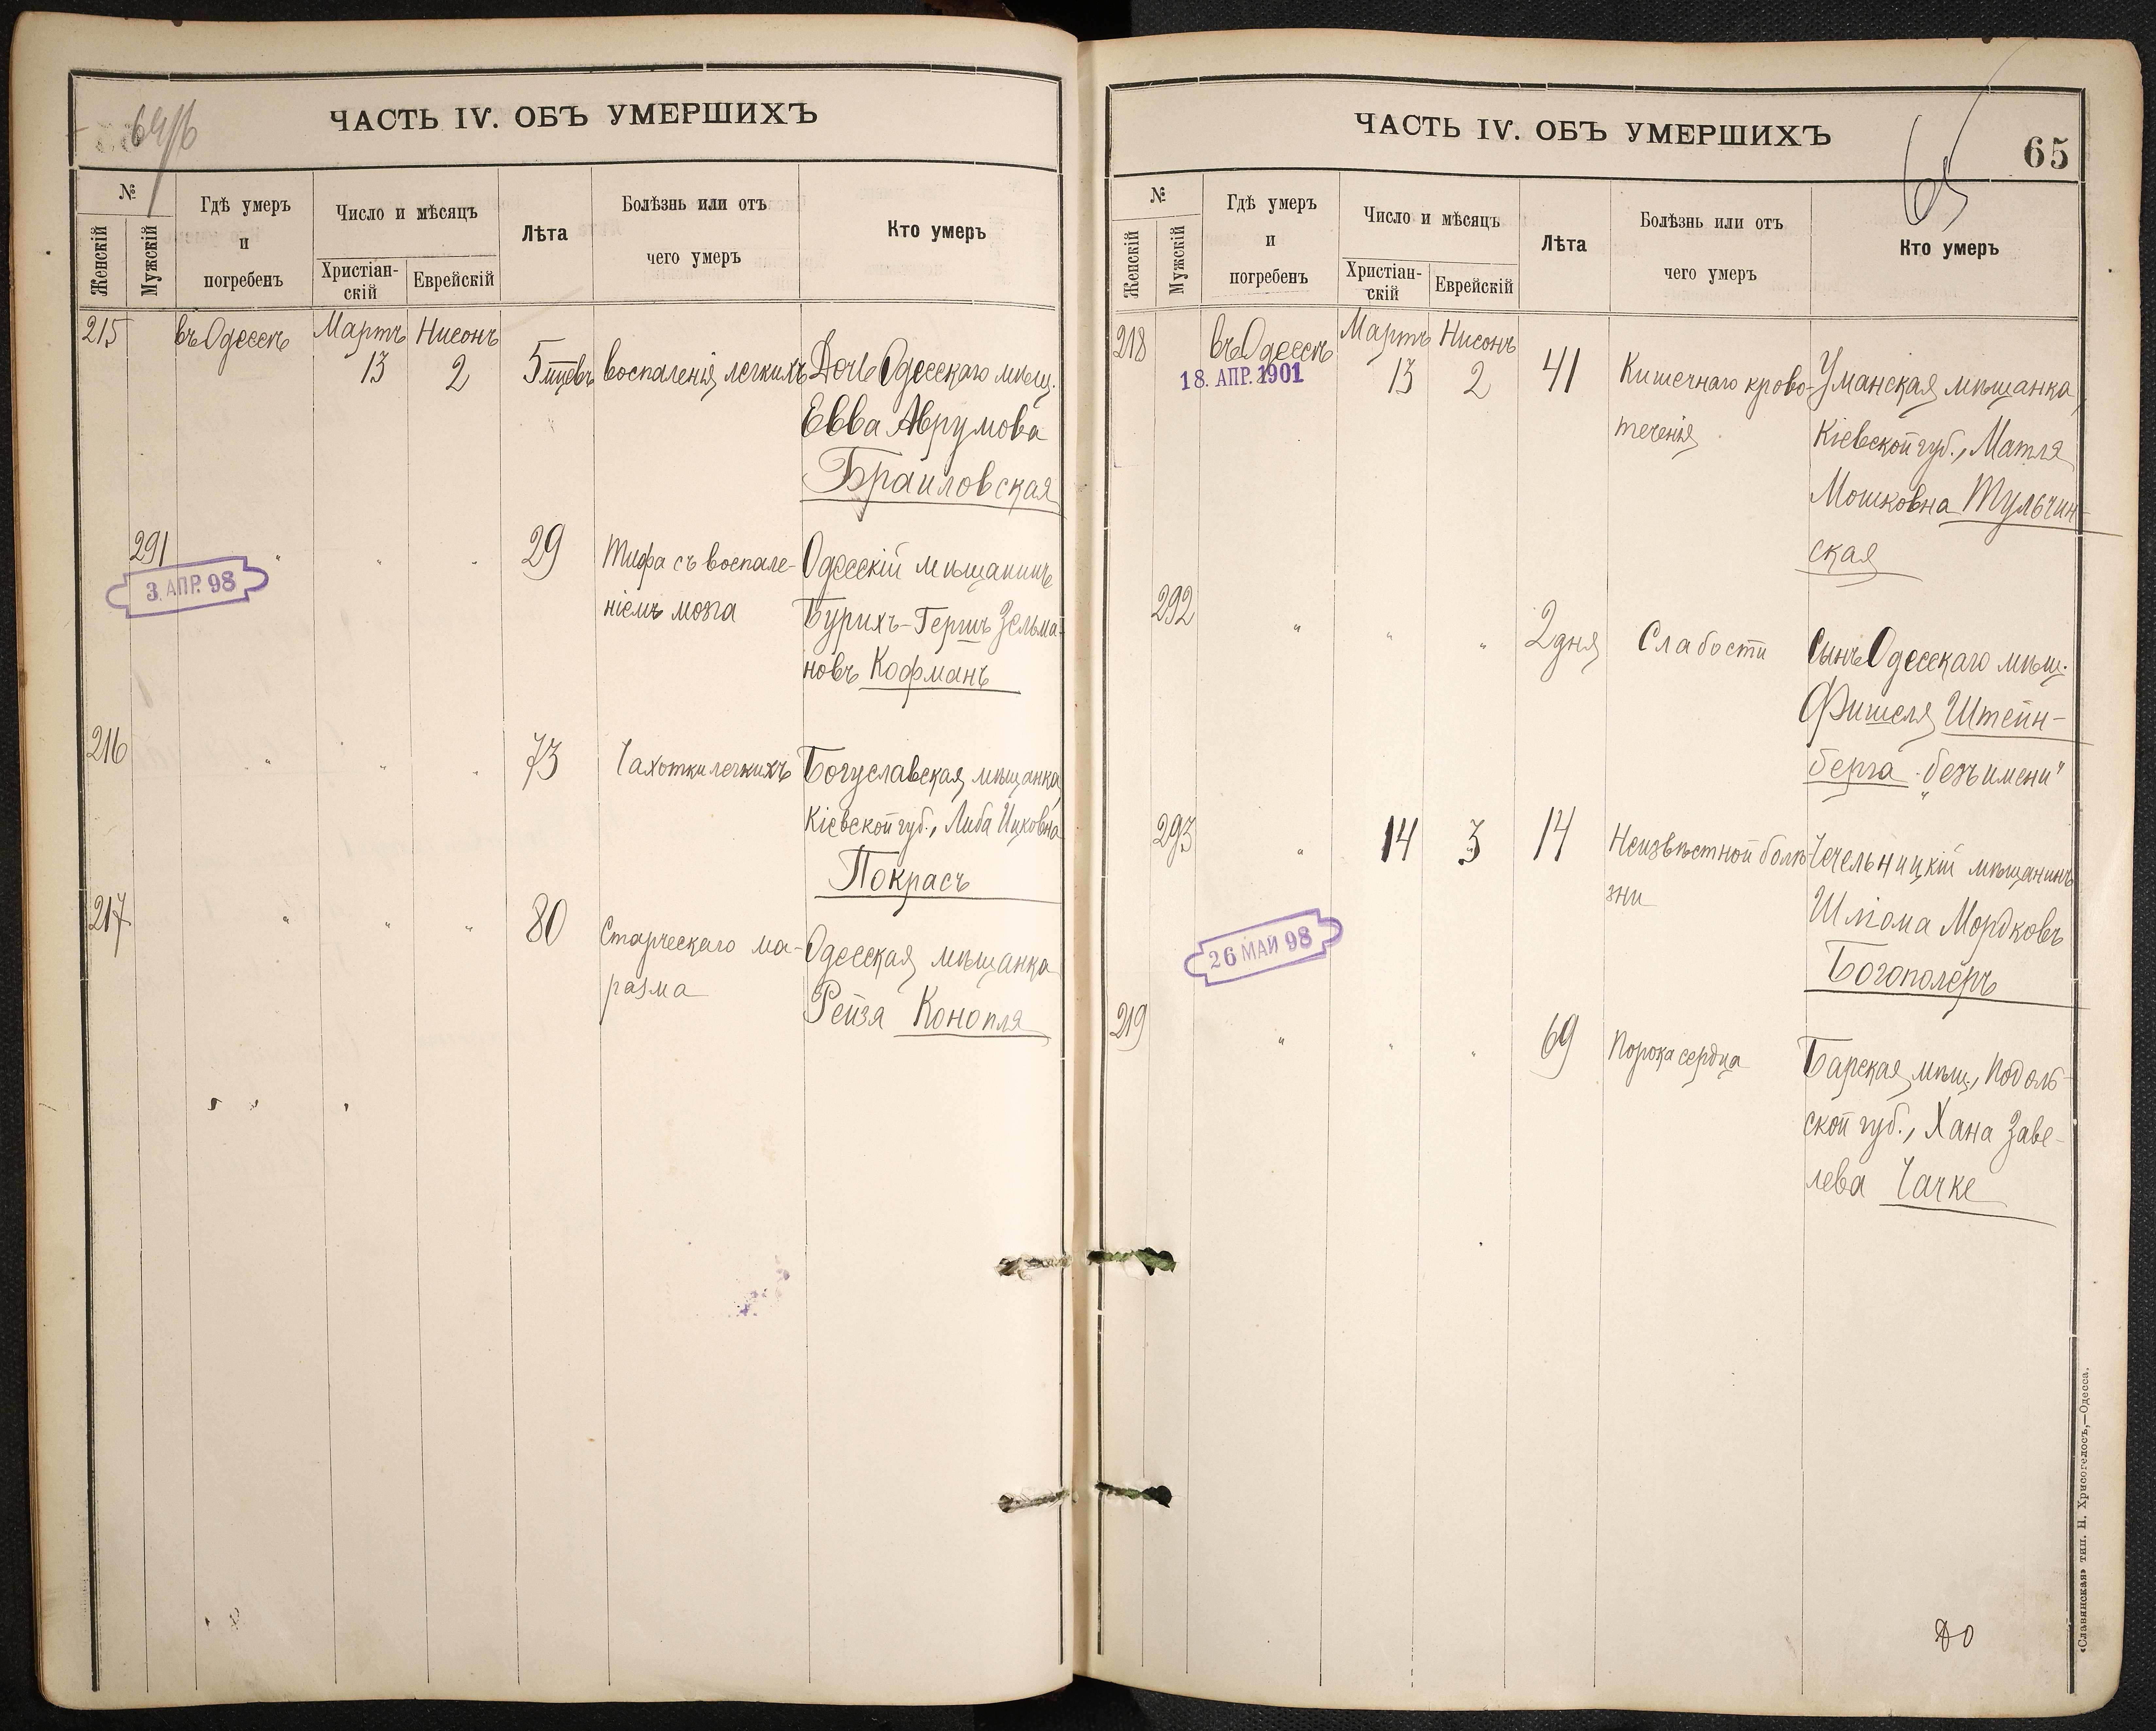 64об
ЧАСТЬ IV. ОБЪ УМЕРШИХЪ
№
Женскій
Мужскій
Гдѣ умеръ
и
погребенъ
Число и мѣсяцъ
Христіан-
скій
Еврейскій
Лѣта
Болѣзнь или отъ
чего умеръ
Кто умеръ
215 въ Одессѣ Мартъ Нисонъ
13 2 5 мцевъ воспаленія легкихъ Дочь Одесскаго мѣщ.
Евва Аврумова
Браиловская
291 " " " 29 Тифа съ воспале- Одесскій мѣщанинъ
3. АПР. 98
ніемъ мозга Бурихъ-Гершъ Зельма-
новъ Кофманъ
216 " " " 73 Чахотки легкихъ Богуславская мѣщанка
Кіевской губ., Либа Ицковна
Покрасъ
217 " " " 80 Старческаго ма- Одесская мѣщанка
разма Рейзя Конопля
ЧАСТЬ IV. ОБЪ УМЕРШИХЪ
65
65
№
Женскій
Мужскій
Гдѣ умеръ
и
погребенъ
Число и мѣсяцъ
Христіан-
скій
Еврейскій
Лѣта
Болѣзнь или отъ
чего умеръ
Кто умеръ
218 въ Одессѣ Мартъ Нисонъ
18. АПР. 1901
13 2 41 Кишечнаго крово- Уманская мѣщанка,
теченія Кіевской губ., Матля
Мошковна Тульчин-
ская
292 " " " 2 дня Слабости Сынъ Одесскаго мѣщ.
Фишеля Штейн-
берга „безъ имени"
293 " 14 3 14 Неизвѣстной болѣ- Чечельницкій мѣщанинъ
зни Шліома Мордковъ
26 МАЙ 98
Богополеръ
219 " " " 69 Порока сердца Барская мѣщ., Подоль-
ской губ., Хана Заве-
лева Чачке
«Славянская» тип. Н. Хрисогелосъ,—Одесса.